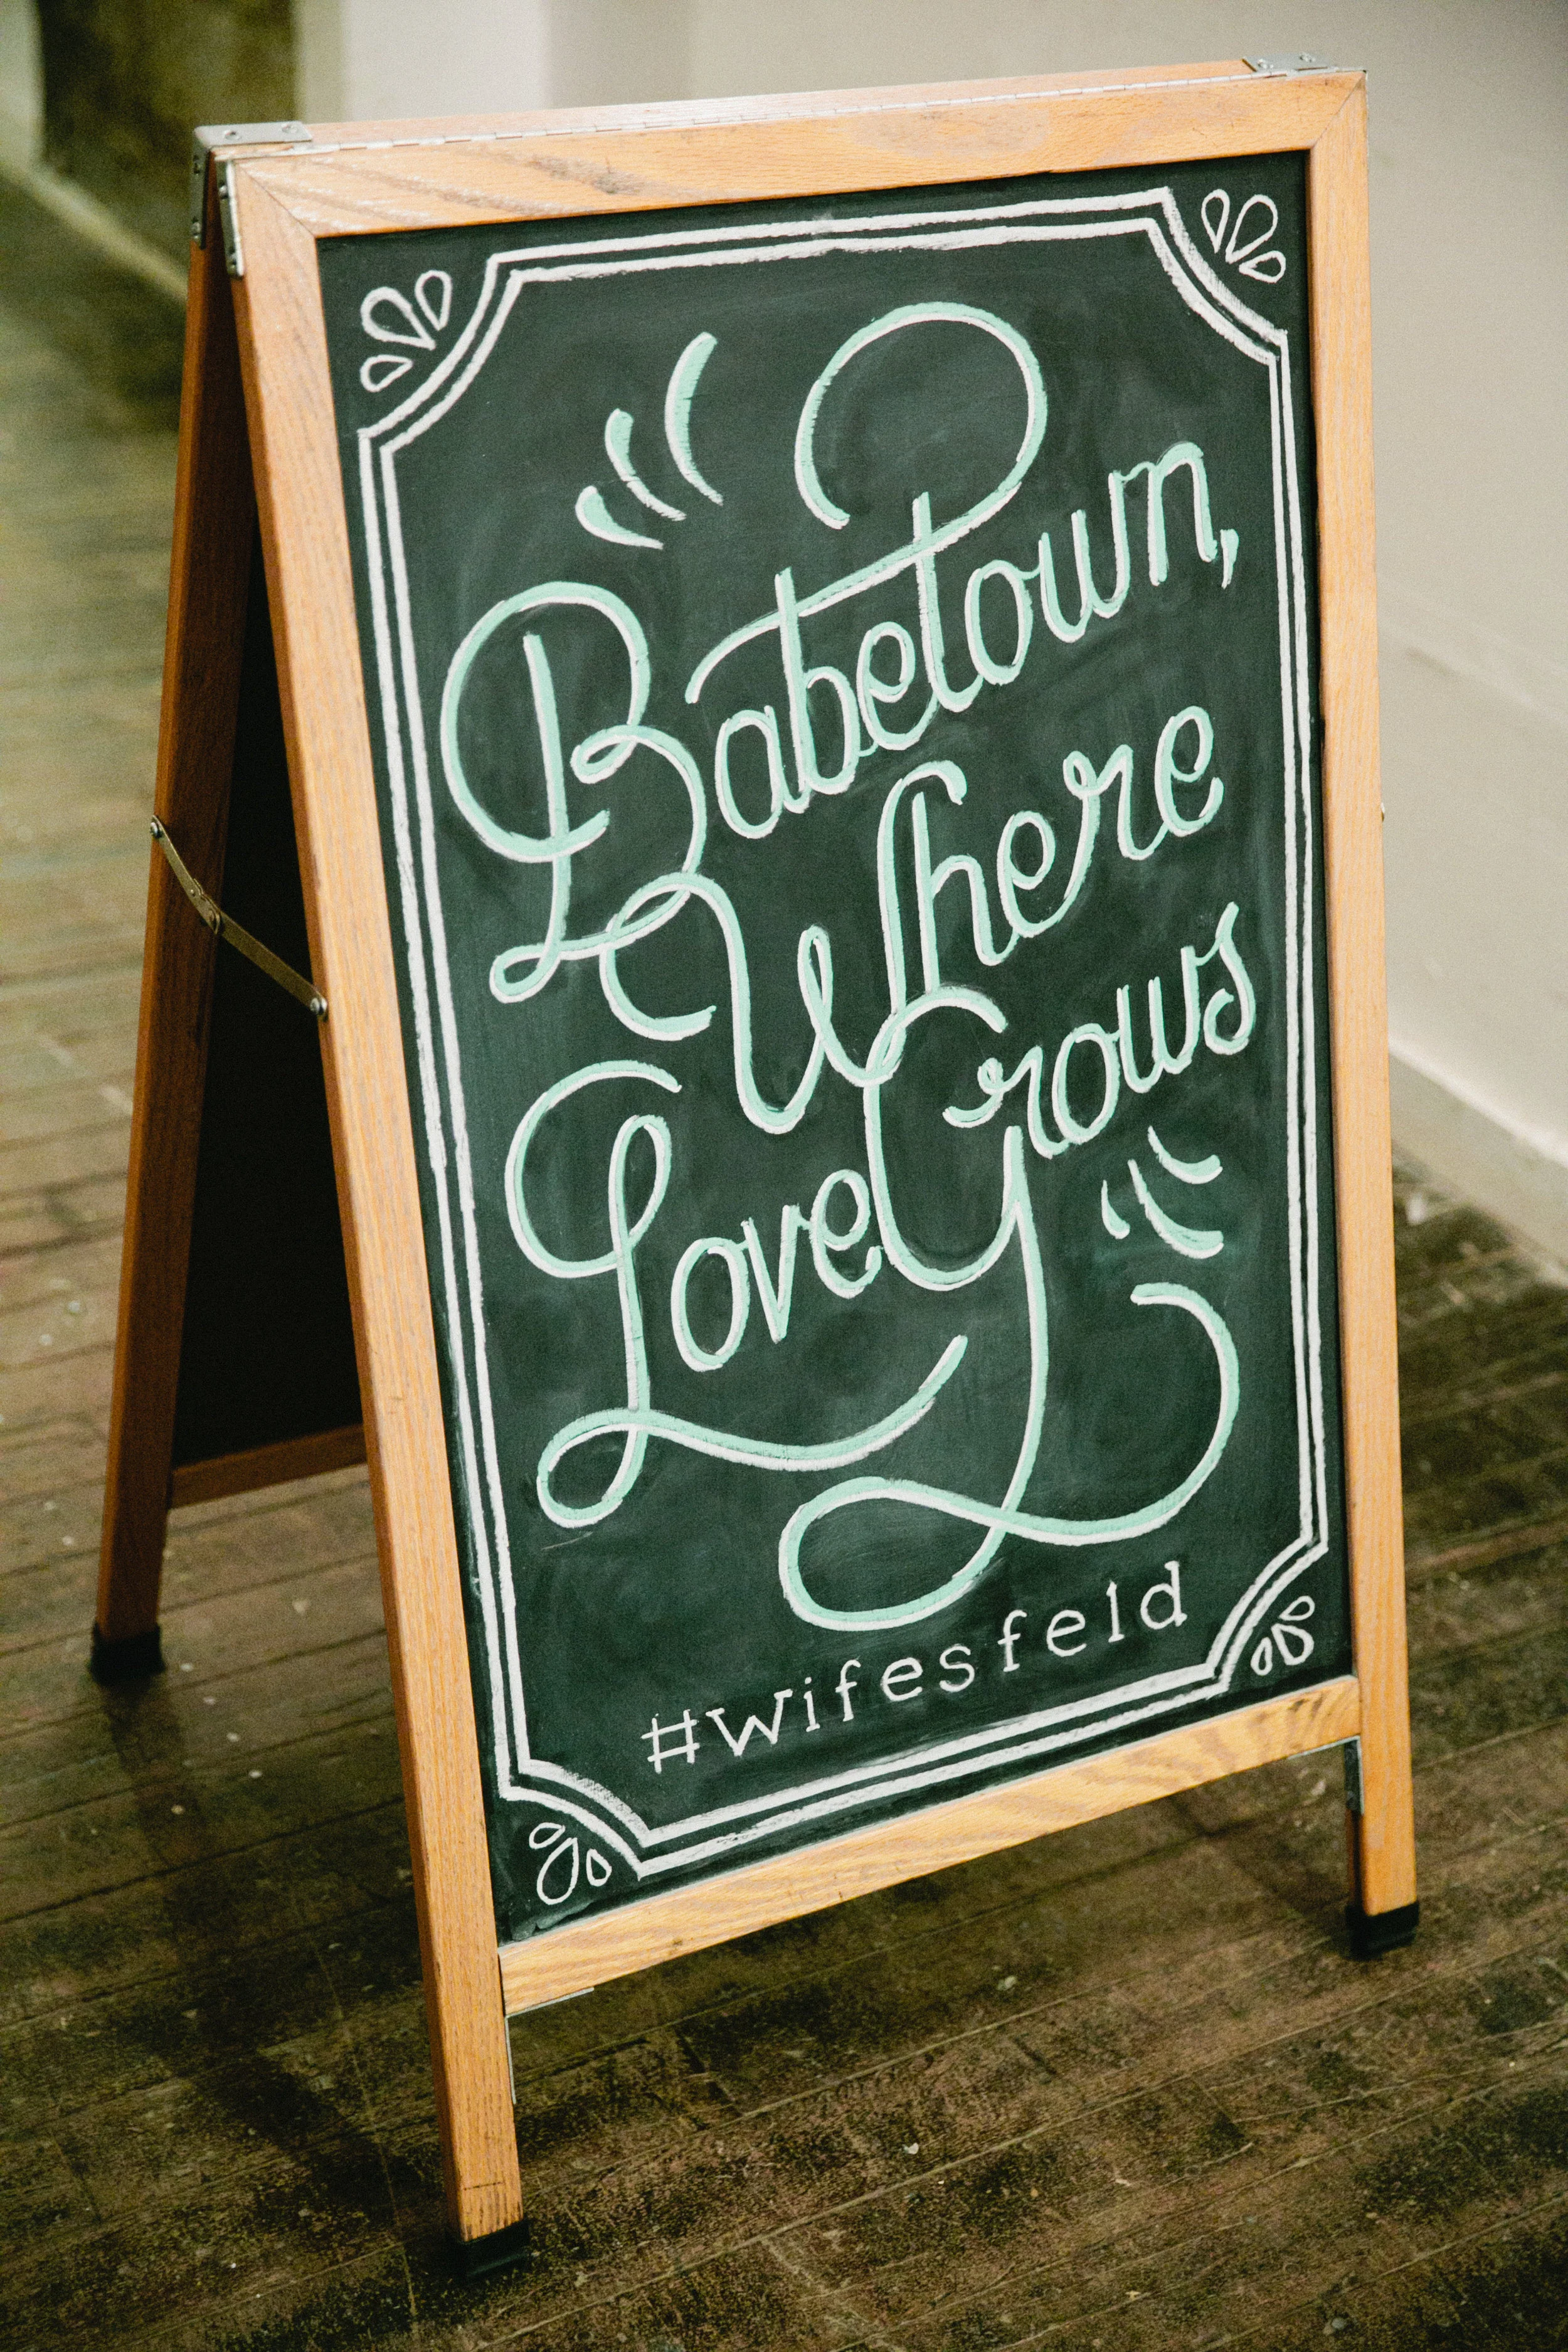 Babetown,
Where
Love Grows
#wifesfeld